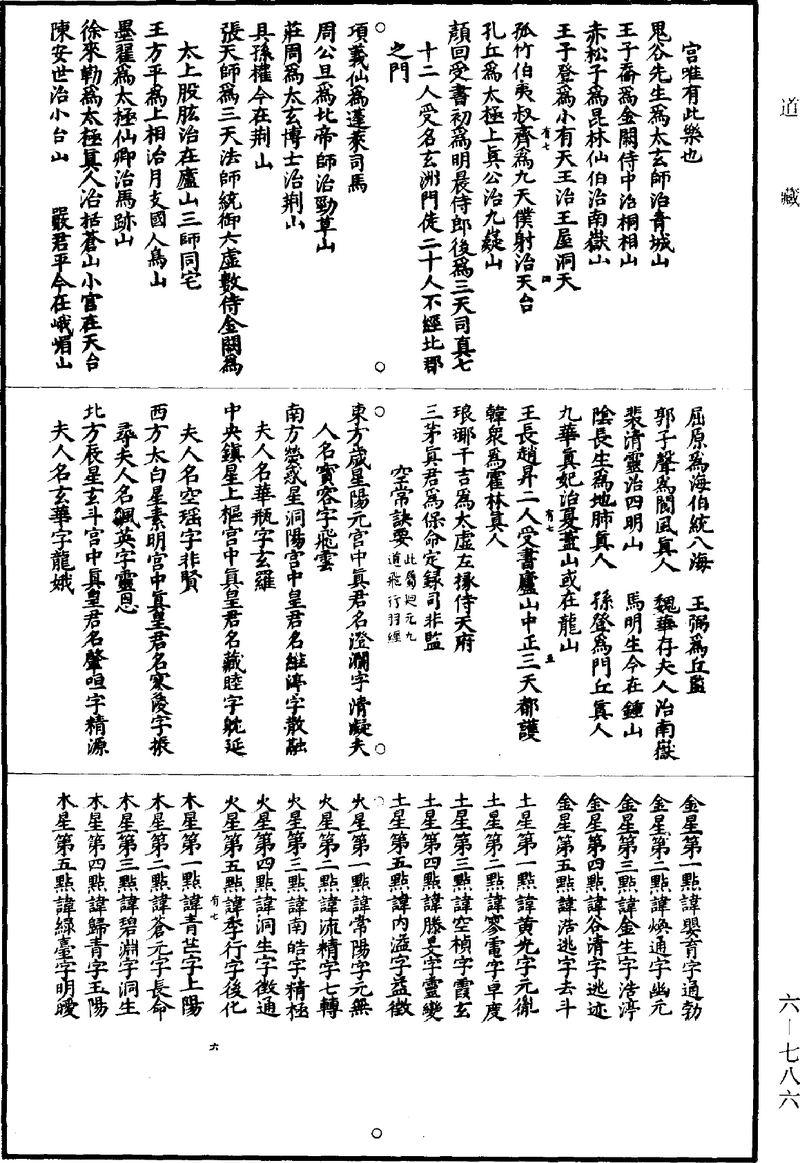 道藏
宫唯有此樂也
鬼谷先生爲太玄師治青城山
王子喬爲金闕侍中治桐柏山
赤松子爲昆林仙伯治南嶽山
王子登爲小有天王治王屋洞天
有七
四
孤竹伯夷叔齊爲九天僕射治天台
孔丘爲太極上真公治九嶷山
顔回受書初爲明晨侍郎後爲三天司真七
十二人受名玄洲門徒三十人不經北酆
之門
項羲仙爲蓬萊司馬
周公旦爲北帝師治勁草山
莊周爲太玄博士治荆山
具孫權今在荆山
張天師爲三天法師統御六虛數侍金闕爲
太上股肱治在廬山三師同宅
王方平爲上相治月支國人鳥山
墨翟爲太極仙卿治馬跡山
徐來勒爲太極真人治括蒼山小宫在天台
陳安世治小台山 嚴君平今在峨嵋山
屈原爲海伯統八海 王弼爲丘監
郭子聲爲閬風真人 魏華存夫人治南嶽
裴清靈治四明山 馬明生今在鍾山
陰長生爲地肺真人 孫登爲門丘真人
九華真妃治夏蓋山或在龍山
王長趙昇二人受書廬山中正三天都護
有七
五
韓衆爲霍林真人
琅瑘干吉爲太虛左掾侍天府
三茅真君爲保命定録司非監
空常訣要 此篇迴元九
道飛行羽經
東方歲星陽元宫中真君名澄瀾字清凝夫
人名寶容字飛雲
南方熒惑星洞陽宫中皇君名維渟字散融
夫人名華瓶字玄羅
中央鎮星上樞宫中真皇君名藏睦字躭延
夫人名空瑶字非賢
西方太白星素明宫中真皇君名寒凌字振
尋夫人名飆英字靈恩
北方辰星玄斗宫中真皇君名肇恒字精源
夫人名玄華字龍娥
金星第一點諱嬰育字通勃
金星第二點諱煥通字幽元
金星第三點諱金生字浩渟
金星第四點諱谷清字逃迹
金星第五點諱浩逃字去斗
土星第一點諱黄光字元胤
土星第二點諱寥電字卓度
土星第三點諱空楨字霞玄
土星第四點諱勝旻字靈變
土星第五點諱内溢字益徵
火星第一點諱常陽字元無
火星第二點諱流精字七轉
火星第三點諱南皓字精極
火星第四點諱洞生字徵通
火星第五點諱李行字後化
有七
六
木星第一點諱青芒字上陽
木星第二點諱蒼元字長命
木星第三點諱碧淵字洞生
木星第四點諱歸青字玉陽
木星第五點諱緑臺字明曖
六－七八六